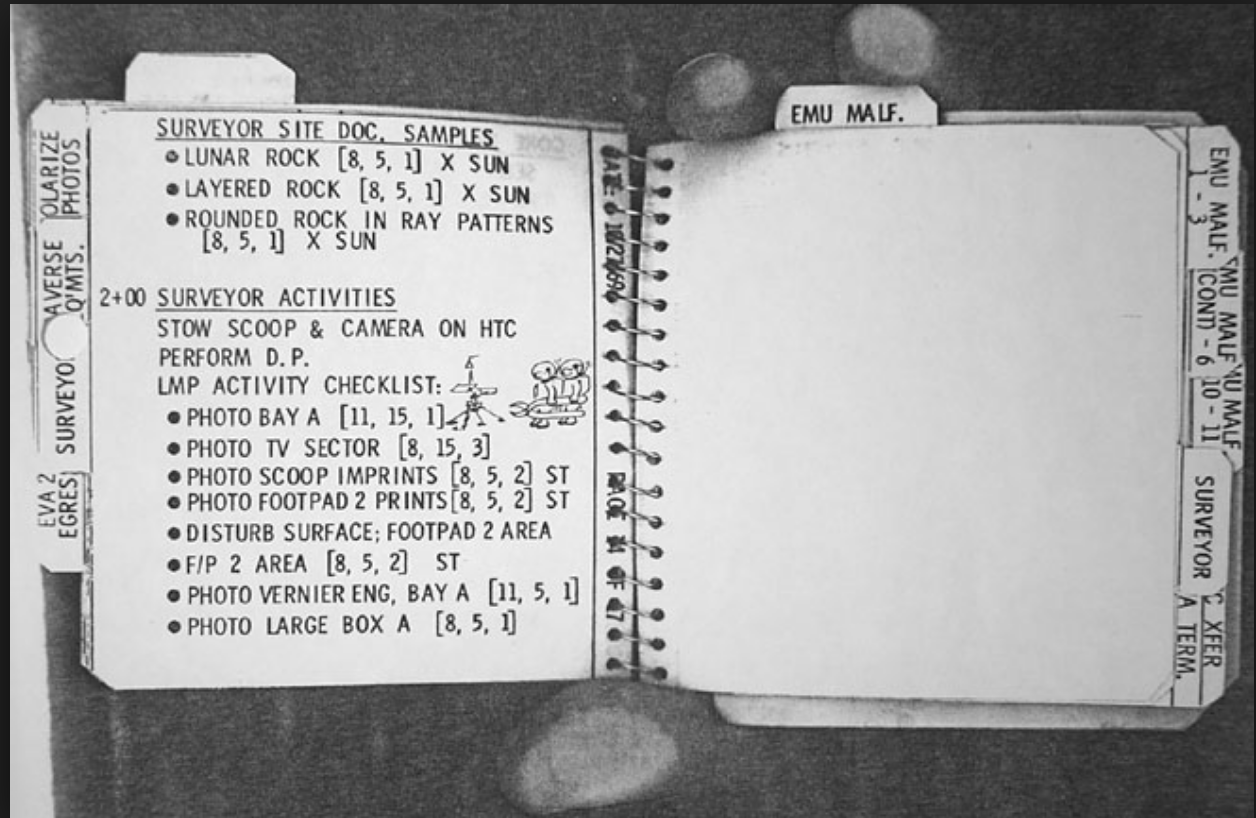 SURVEYOR SITE DOC. SAMPLES
● LUNAR ROCK [8, 5, 1] X SUN
● LAYERED ROCK [8, 5, 1] X SUN
● ROUNDED ROCK IN RAY PATTERNS
[8, 5, 1] X SUN
2+00 SURVEYOR ACTIVITIES
STOW SCOOP & CAMERA ON HTC
PERFORM D.P.
LMP ACTIVITY CHECKLIST:
● PHOTO BAY A [11, 15, 1]
● PHOTO TV SECTOR [8, 15, 3]
● PHOTO SCOOP IMPRINTS [8, 5, 2] ST
● PHOTO FOOTPAD 2 PRINTS [8, 5, 2] ST
● DISTURB SURFACE; FOOTPAD 2 AREA
● F/P 2 AREA [8, 5, 2] ST
● PHOTO VERNIER ENG, BAY A [11, 5, 1]
● PHOTO LARGE BOX A [8, 5, 1]
OLARIZE
PHOTOS
AVERSE
Q'MTS.
SURVEYO
EVA 2
EGRES
EMU MALF.
EMU MALF.
1 - 3
MU MALF
(CONT) - 6
MALF
10 - 11
SURVEYOR
XFER
A TERM.